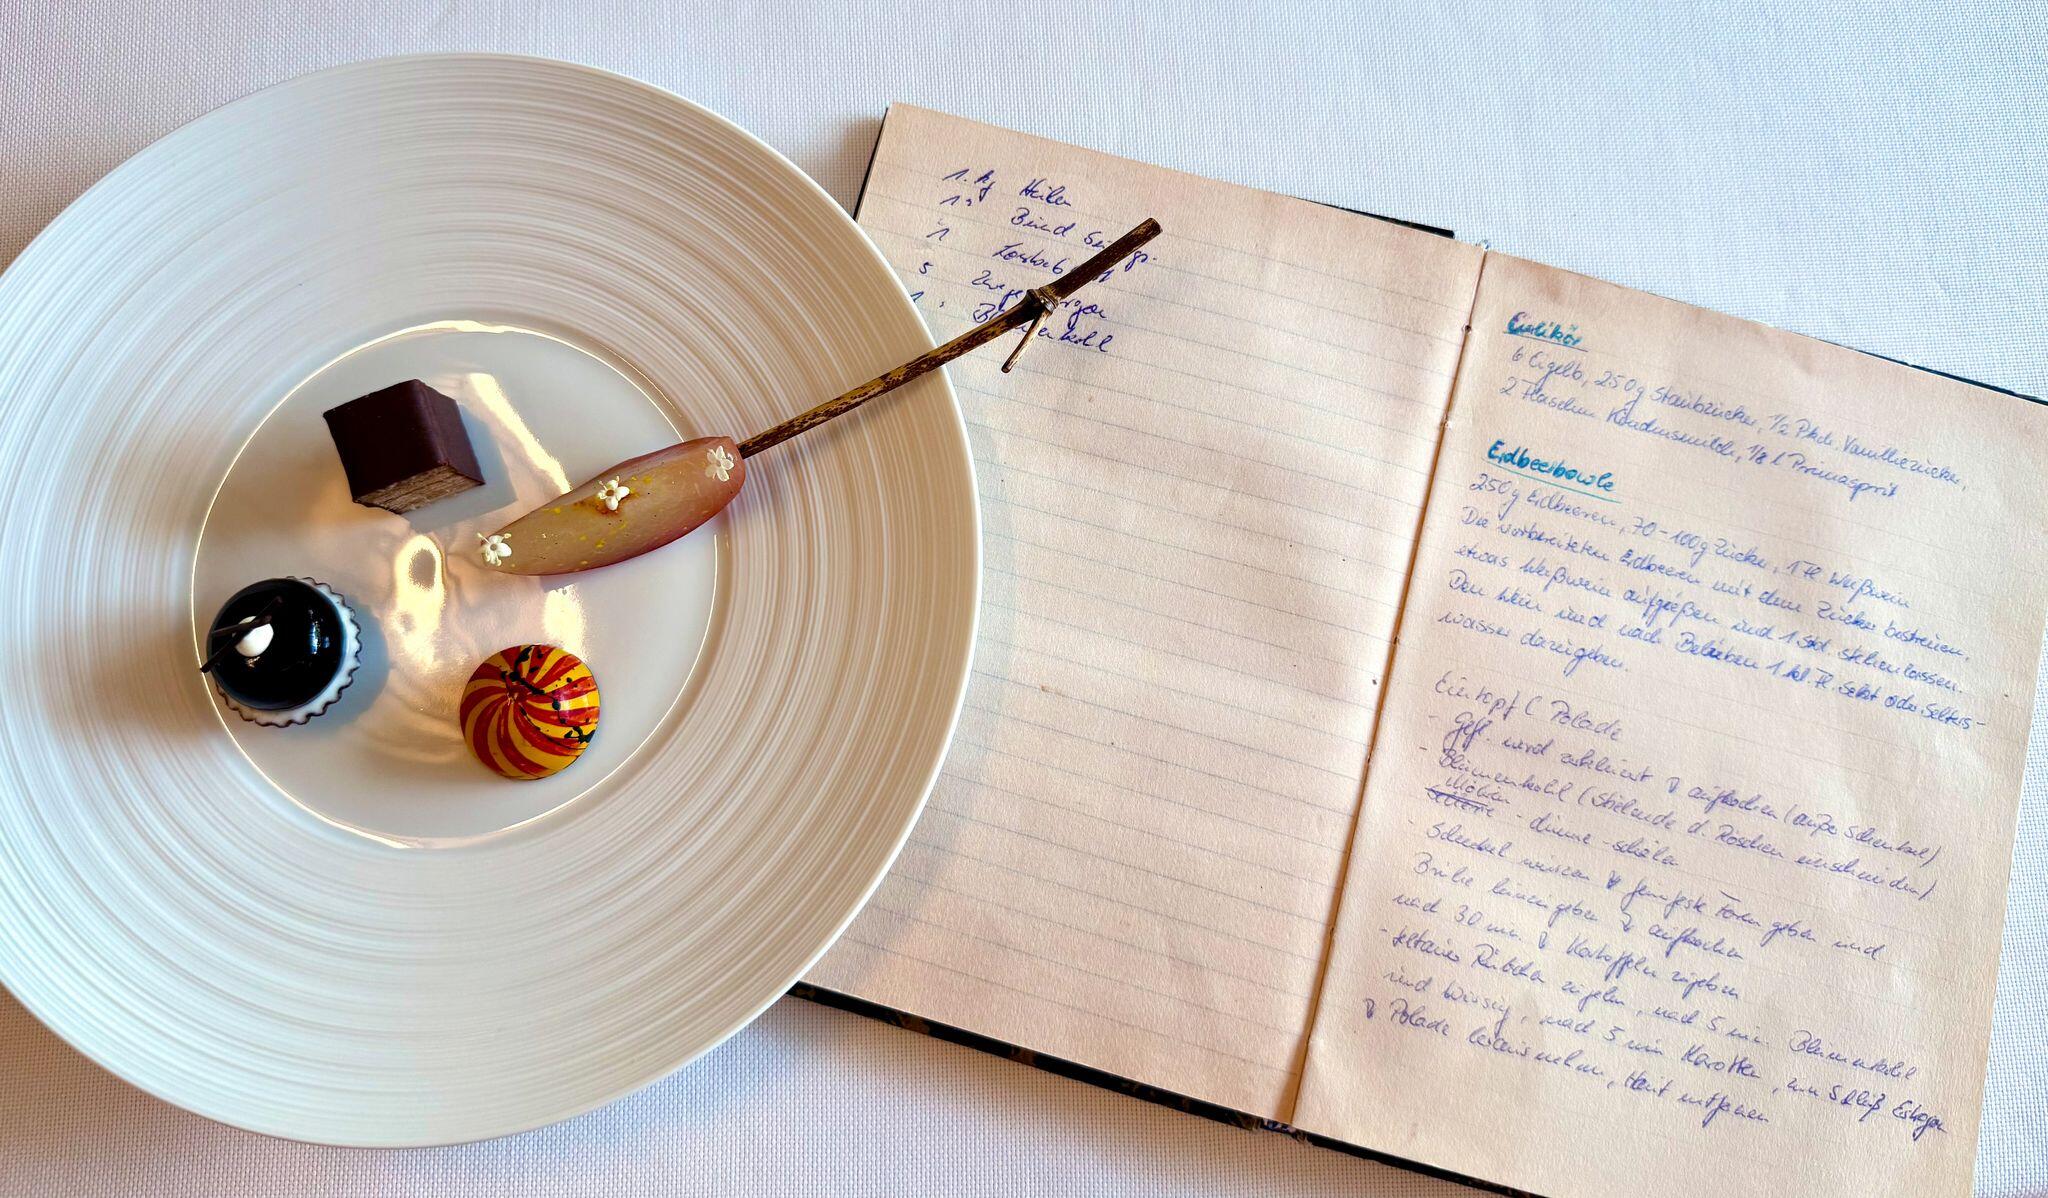 1. Kg
1
1
5
1
Eierlikör
6 Eigelb, 250g Staubzucker, 1/2 Pkch. Vanillezucker,
2 Flaschen Kondensmilch, 1/8 l Primasprit
Erdbeerbowle
250g Erdbeeren, 70-100g Zucker, 1 Fl. Weißwein
Die vorbereiteten Erdbeeren mit dem Zucker bestreuen,
etwas Weißwein aufgießen und 1 Std. stehenlassen.
Den Wein und nach Belieben 1 kl. Fl. Sekt oder Selters-
wasser dazugeben.
Eintopf (Polade
- Gefl. wird zerkleinert aufkochen (außer Schenkel)
- Blumenkohl (Stielende d. Röschen einschneiden)
Möhren
- dünne - schälen
- Schenkel würzen feuerfeste Form geben und
Brühe hineingeben aufkochen
nach 30 min. Kartoffeln zugeben
- Teltower Rübchen zugeben, nach 5 min. Blumenkohl
und Wirsing, nach 5 min Karotten, zum Schluß Estragon
Polade herausnehmen, Haut entfernen